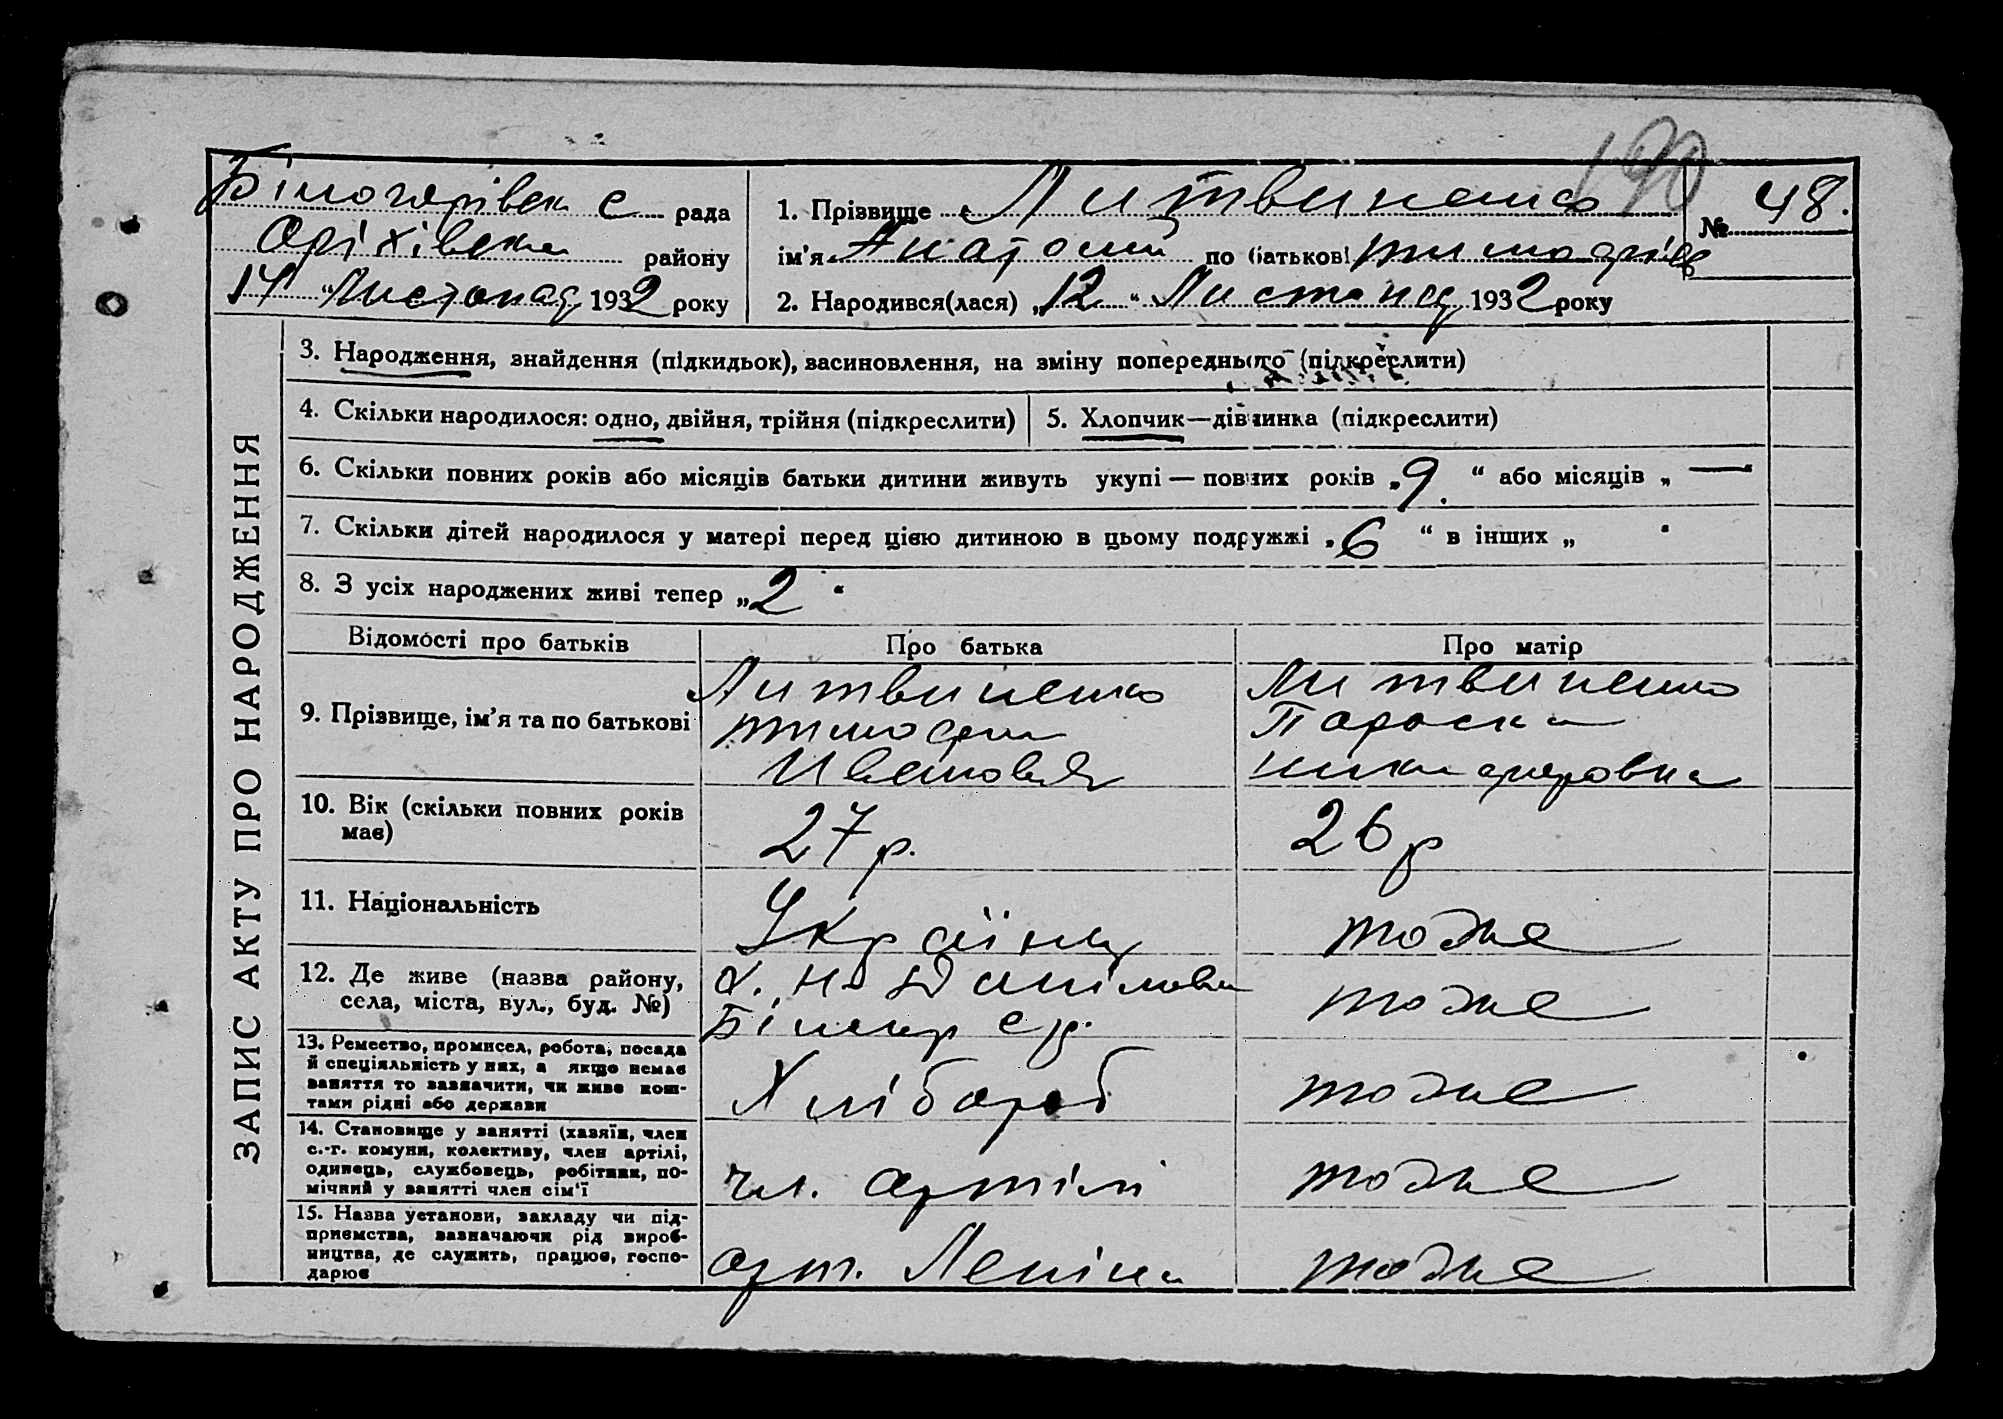 190
Білогорівськ с рада
Оріхівськ району
14 "Листопад 1932 року
1. Прізвище Литвиненко
№ 48.
ім'я Анатолій по батькові Тимофійов
2. Народився(лася) „12" Листопад 1932 року
ЗАПИС АКТУ ПРО НАРОДЖЕННЯ
3. Народження, знайдення (підкидьок), засиновлення, на зміну попереднього (підкреслити)
4. Скільки народилося: одно, двійня, трійня (підкреслити)
5. Хлопчик—дівчинка (підкреслити)
6. Скільки повних років або місяців батьки дитини живуть укупі — повних років „9." або місяців „—"
7. Скільки дітей народилося у матері перед цією дитиною в цьому подружжі „6" в інших „ "
8. З усіх народжених живі тепер „2"
Відомості про батьків
Про батька
Про матір
9. Прізвище, ім'я та по батькові
Литвиненко
Тимофій
Иванович
Литвиненко
Параска
Никифоровна
10. Вік (скільки повних років
має)
27 р.
26 р
11. Національність
Українц
тоже
12. Де живе (назва району,
села, міста, вул., буд. №)
х. Ново Данілівка
Білогор с р.
тоже
13. Ремество, промисел, робота, посада
й спеціяльність у них, а якщо немає
заняття то зазначити, чи живе кош-
тами рідні або держави
Хлібороб
тоже
14. Становище у занятті (хазяїн, член
с.-г. комуни, колективу, член артілі,
одинець, службовець, робітник, по-
мічний у занятті член сім'ї
чл. артілі
тоже
15. Назва установи, закладу чи під-
приємства, зазначаючи рід вироб-
ництва, де служить, працює, госпо-
дарює
арт. Леніна
тоже